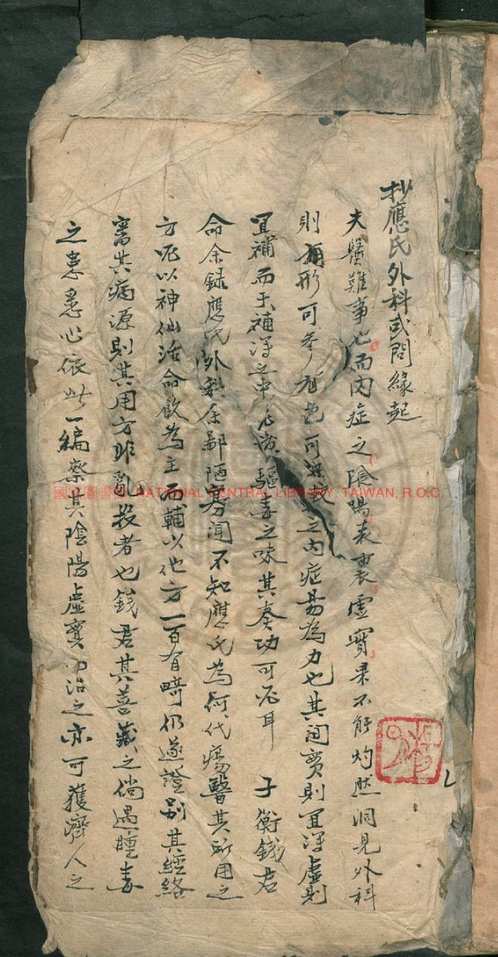 抄應氏外科或問緣起
夫醫難事也而內症之陰陽表裏虛實果不能灼然洞見外科
則有形可參有色可 之內症易為力也其間實則宜瀉虛則
宜補而于補瀉之中 驅毒之味其奏功可 耳 子衡錢君
命余錄應氏外科余鄙陋寡聞不知應氏為何代瘍醫其所用之
方 以神仙活命飲為主而輔以他方一百有 仍遂證別其經絡
審其病源則其用方非亂投者也錢君其善藏之倘遇腫毒
之患悉心依此一編察其陰陽虛實 治之亦可獲濟人之
國家圖書館 NATIONAL CENTRAL LIBRARY, TAIWAN, R.O.C